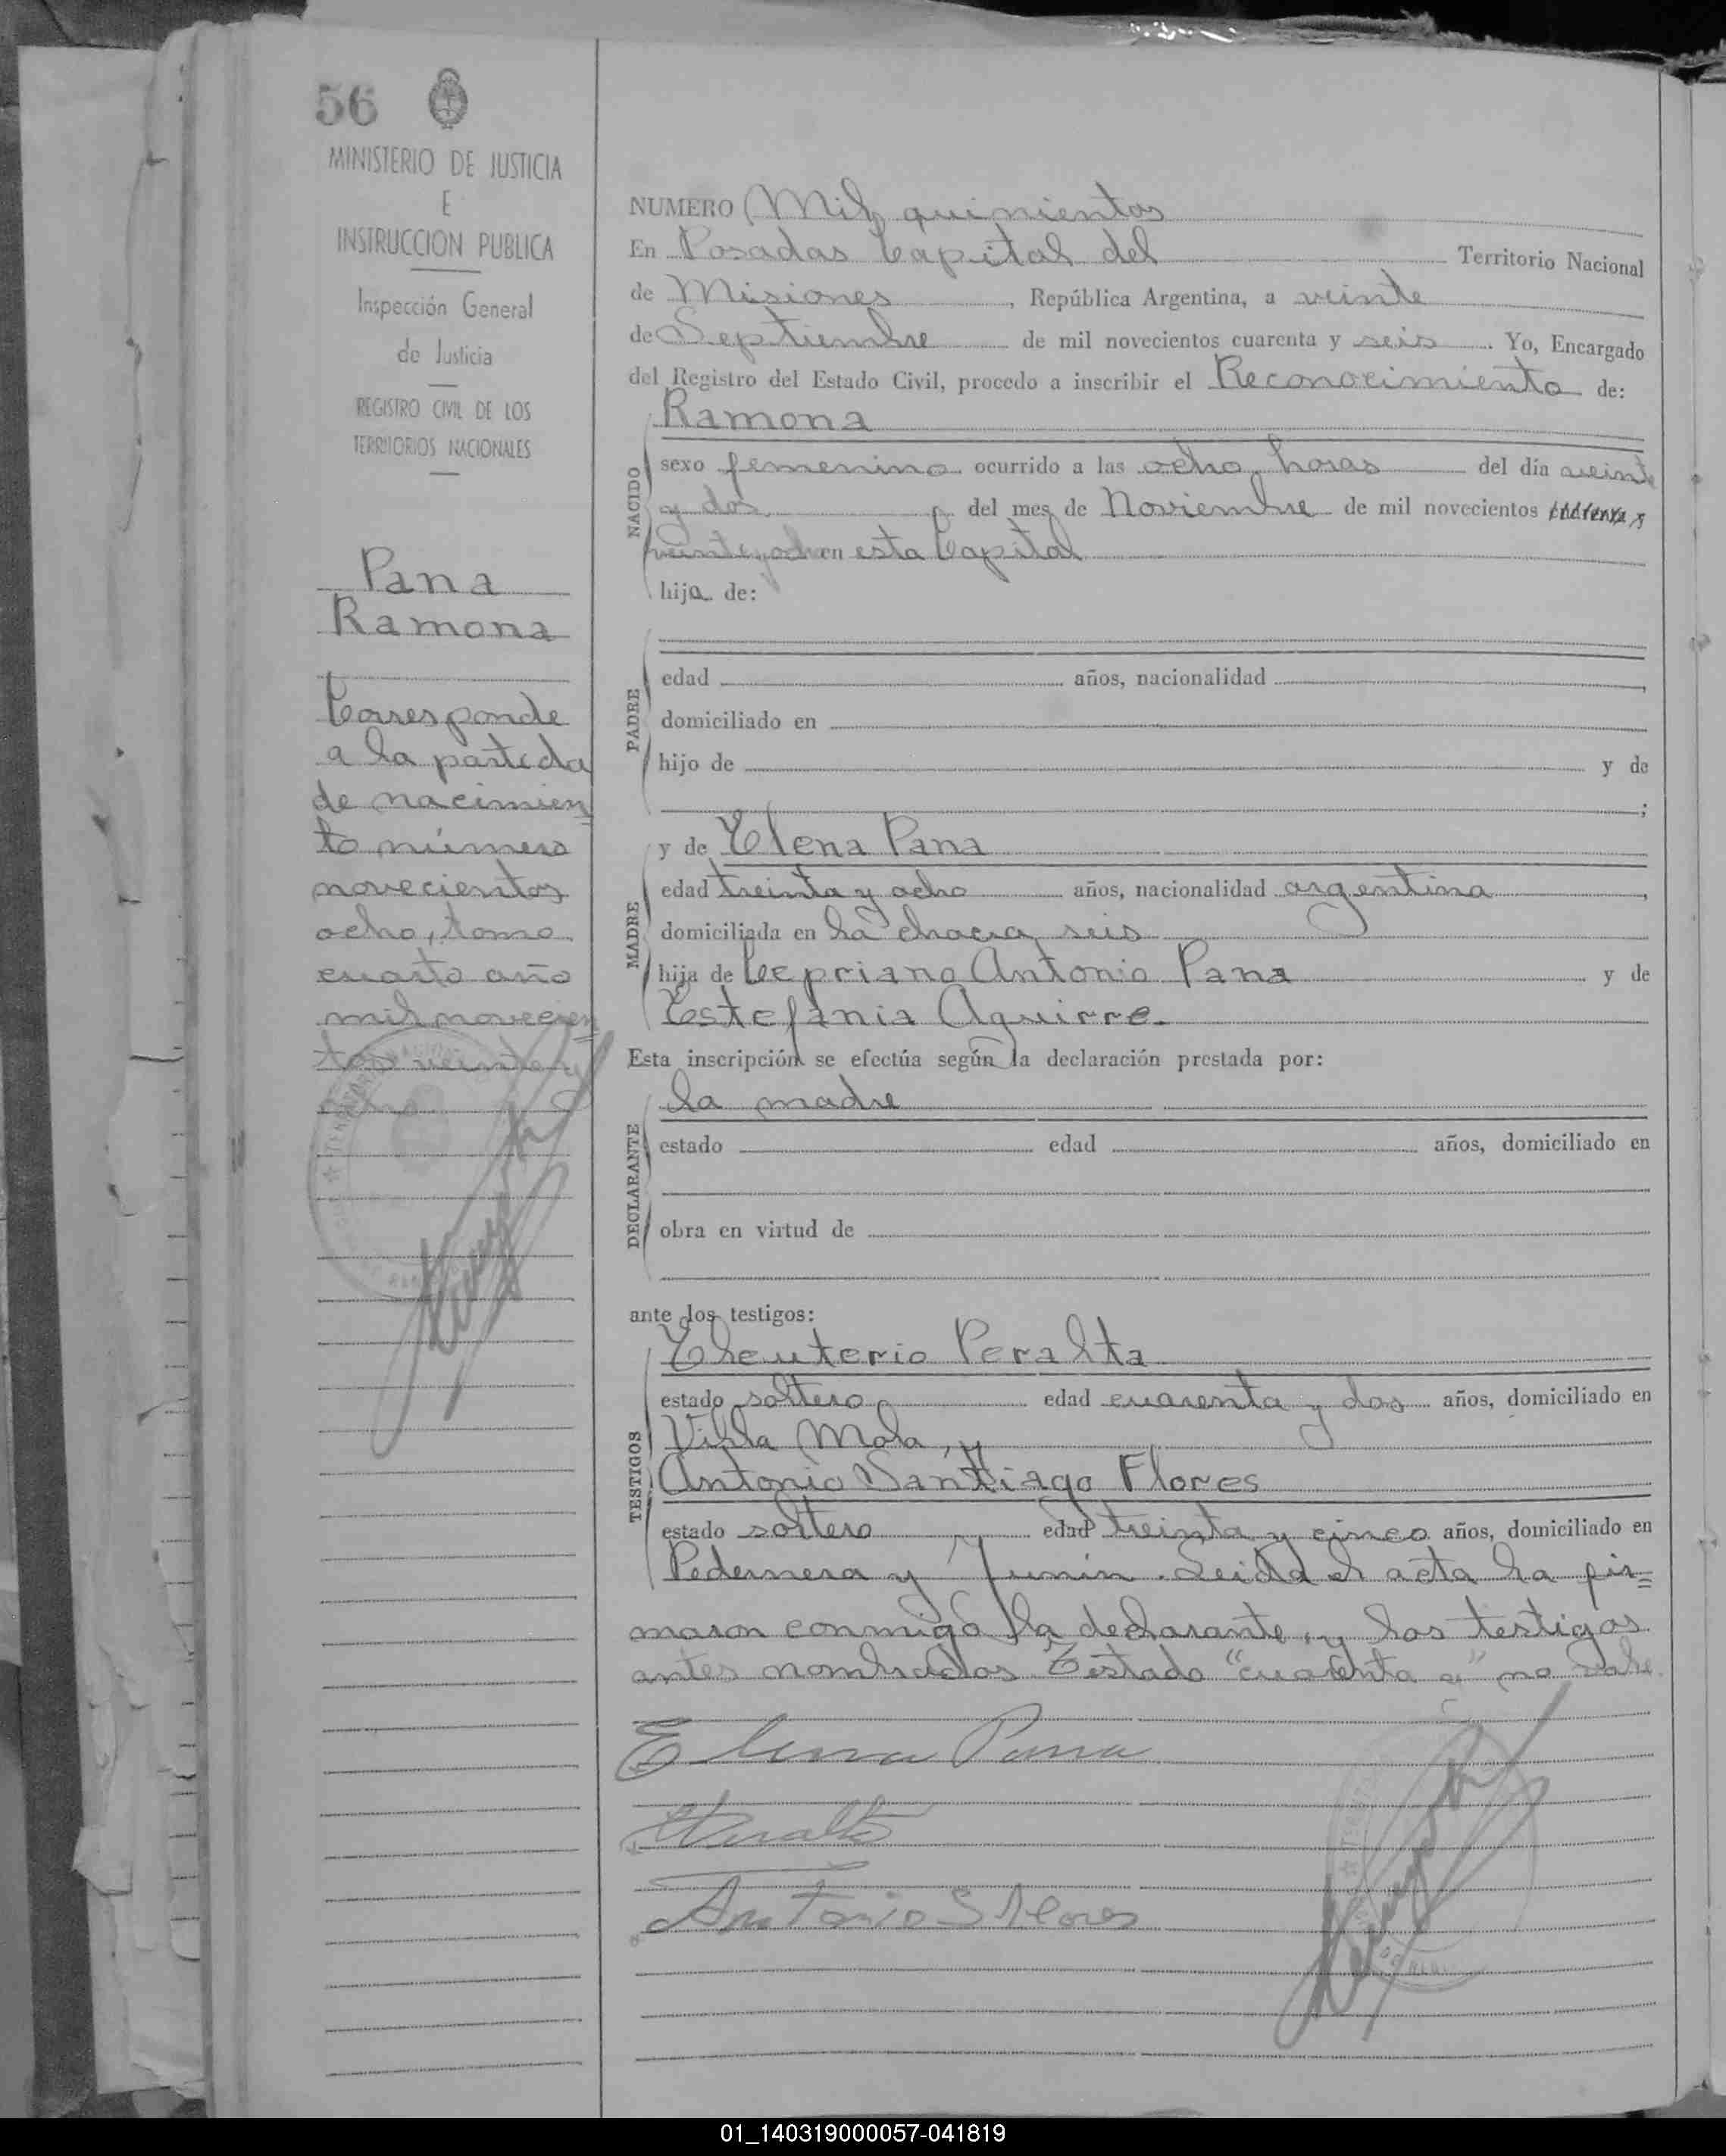 56
MINISTERIO DE JUSTICIA
E
INSTRUCCION PUBLICA
Inspección General
de Justicia
REGISTRO CIVIL DE LOS
TERRITORIOS NACIONALES
Pana
Ramona
Corresponde
a la partida
de nacimien
to número
novecientos
ocho, tomo
cuarto año
mil novecien
tos veinte y
ocho
NUMERO Mil quinientos
En Posadas Capital del Territorio Nacional
de Misiones, República Argentina, a veinte
de Septiembre de mil novecientos cuarenta y seis. Yo, Encargado
del Registro del Estado Civil, procedo a inscribir el Reconocimiento de:
Ramona
NACIDO
sexo femenino ocurrido a las ocho horas del día veinte
y dos del mes de Noviembre de mil novecientos cuarenta y
veinte y ocho en esta Capital
hija de:
PADRE
edad años, nacionalidad ,
domiciliado en
hijo de y de
;
MADRE
y de Elena Pana
edad treinta y ocho años, nacionalidad argentina,
domiciliada en la chacra seis
hija de Cepriano Antonio Pana y de
Estefania Aguirre.
Esta inscripción se efectúa según la declaración prestada por:
DECLARANTE
la madre
estado edad años, domiciliado en
obra en virtud de
ante los testigos:
TESTIGOS
Eleuterio Peralta
estado soltero edad cuarenta y dos años, domiciliado en
Villa Mola, y
Antonio Santiago Flores
estado soltero edad treinta y cinco años, domiciliado en
Pedernera y Junin. Leida el acta la fir=
maron conmigo la declarante, y los testigos
antes nombrados. Testado "cuarenta y" no vale
Elena Pana
EPeralta
Antonio S Flores
01_140319000057-041819